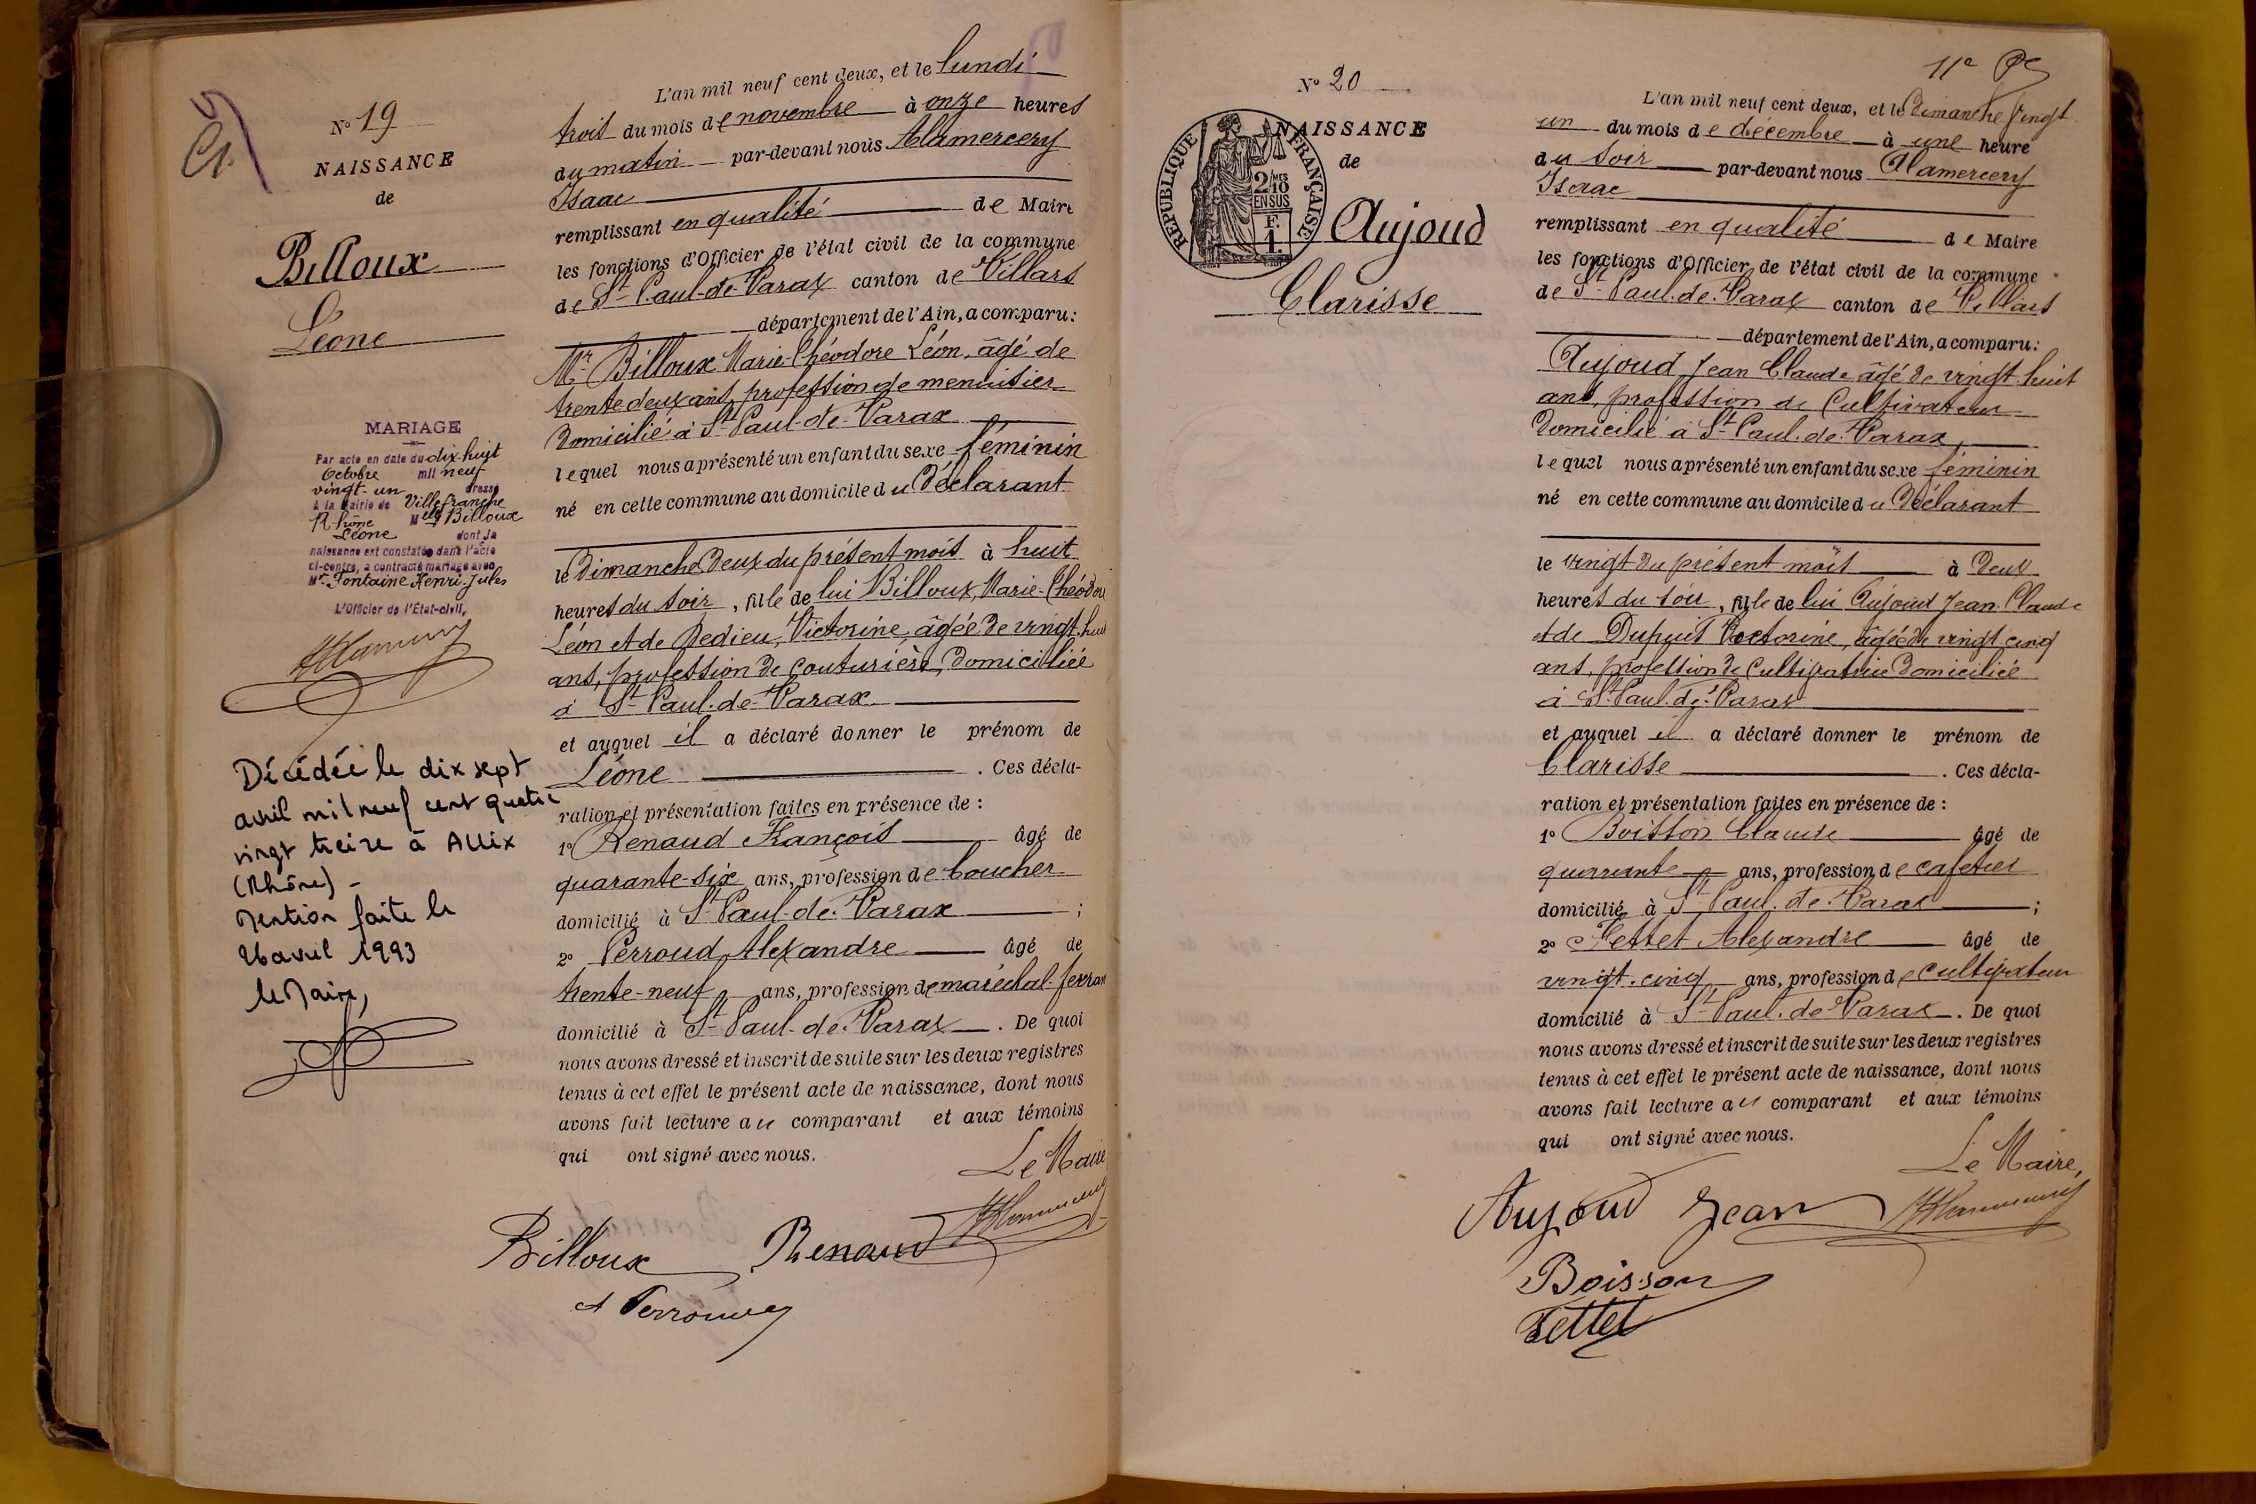 N° 19
NAISSANCE
de
Billoux
Léone
MARIAGE
Par acte en date du dix-huit
Octobre mil neuf
vingt-un dressé
à la Mairie de Villefranche
Rhône Melle Billoux
Léone dont la
naissance est constatée dans l'acte
ci-contre, a contracté mariage avec
Mr. Fontaine Henri-Jules
L'Officier de l'État-civil,
Décédée le dix sept
avril mil neuf cent quatre
vingt treize à Alix
(Rhône) -
Mention faite le
26 avril 1993
le Maire,
L'an mil neuf cent deux, et le lundi
trois du mois de novembre à onze heures
du matin par-devant nous Alamercery
Isaac
remplissant en qualité de Maire
les fonctions d'Officier de l'état civil de la commune
de St-Paul-de-Varax canton de Villars
département de l'Ain, a comparu:
Mr. Billoux Marie-Théodore Léon, âgé de
trente deux ans, profession de menuisier
domicilié à St-Paul-de-Varax
lequel nous a présenté un enfant du sexe féminin
né en cette commune au domicile du Déclarant
le Dimanche Deux du présent mois à huit
heures du soir, fille de lui Billoux, Marie-Théodore
Léon et de Dedieu, Victorine, âgée de vingt-huit
ans, profession de couturière, domiciliée
à St-Paul-de-Varax
et auquel il a déclaré donner le prénom de
Léone. Ces décla-
ration et présentation faites en présence de :
1° Renaud François âgé de
quarante-six ans, profession de boucher
domicilié à St-Paul-de-Varax ;
2° Perroud Alexandre âgé de
trente-neuf ans, profession de maréchal-ferrant
domicilié à St-Paul-de-Varax. De quoi
nous avons dressé et inscrit de suite sur les deux registres
tenus à cet effet le présent acte de naissance, dont nous
avons fait lecture au comparant et aux témoins
qui ont signé avec nous.
Le Maire
Billoux Renaud
A Perroud
11e
N° 20
NAISSANCE
de
RÉPUBLIQUE FRANÇAISE
2/10 MES
EN SUS
F.
1.
Aujoud
Clarisse
L'an mil neuf cent deux, et le Dimanche vingt
un du mois de décembre à une heure
du soir par-devant nous Alamercery
Isaac
remplissant en qualité de Maire
les fonctions d'Officier de l'état civil de la commune
de St-Paul-de-Varax canton de Villars
département de l'Ain, a comparu:
Aujoud Jean Claude âgé de vingt-huit
ans, profession de Cultivateur
domicilié à St-Paul-de-Varax,
lequel nous a présenté un enfant du sexe féminin
né en cette commune au domicile du Déclarant
le vingt du présent mois à Deux
heures du soir, fille de lui Aujoud Jean Claude
et de Dupuis Victorine, âgée de vingt cinq
ans, profession de Cultivatrice domiciliée
à St-Paul-de-Varax
et auquel il a déclaré donner le prénom de
Clarisse. Ces décla-
ration et présentation faites en présence de :
1° Boisson Claude âgé de
quarante ans, profession de cafetier
domicilié à St-Paul-de-Varax ;
2° Tettet Alexandre âgé de
vingt-cinq ans, profession de cultivateur
domicilié à St-Paul-de-Varax. De quoi
nous avons dressé et inscrit de suite sur les deux registres
tenus à cet effet le présent acte de naissance, dont nous
avons fait lecture au comparant et aux témoins
qui ont signé avec nous.
Le Maire,
Aujoud Jean
Boisson
Tettet